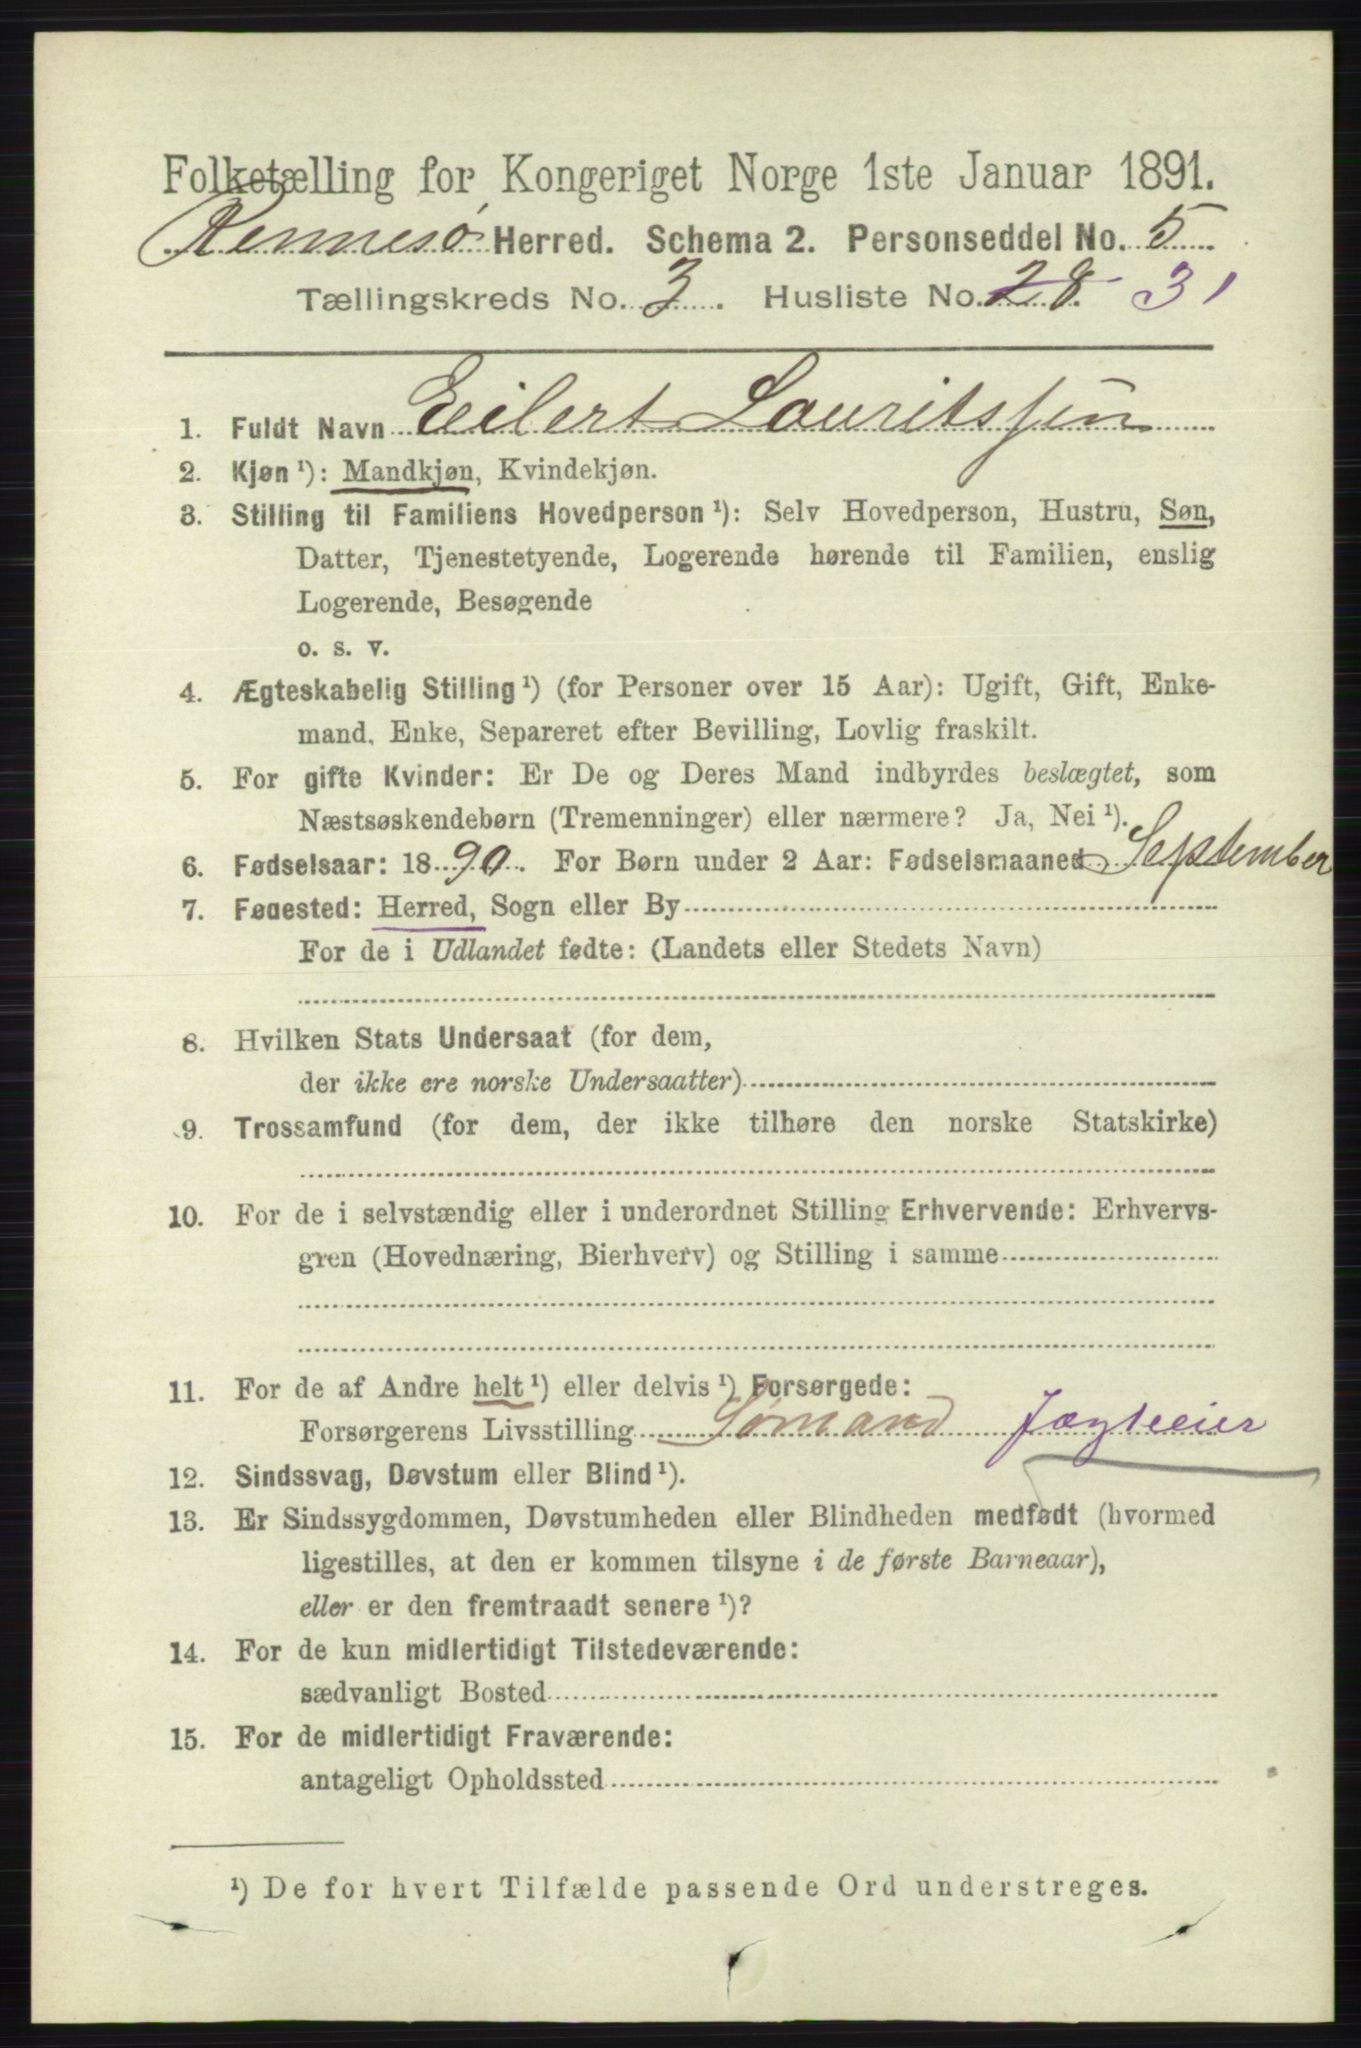 Folketælling for Kongeriget Norge 1ste Januar 1891.
Rennesø Herred. Schema 2. Personseddel No. 5
Tællingskreds No. 3. Husliste No. 28. 31
1. Fuldt Navn Eilert Lauritssen
2. Kjøn ¹): Mandkjøn, Kvindekjøn.
3. Stilling til Familiens Hovedperson ¹): Selv Hovedperson, Hustru, Søn,
Datter, Tjenestetyende, Logerende hørende til Familien, enslig
Logerende, Besøgende
o. s. v.
4. Ægteskabelig Stilling ¹) (for Personer over 15 Aar): Ugift, Gift, Enke-
mand, Enke, Separeret efter Bevilling, Lovlig fraskilt.
5. For gifte Kvinder: Er De og Deres Mand indbyrdes beslægtet, som
Næstsøskendebørn (Tremenninger) eller nærmere? Ja, Nei ¹).
6. Fødselsaar: 1890. For Børn under 2 Aar: Fødselsmaaned September
7. Fødested: Herred, Sogn eller By
For de i Udlandet fødte: (Landets eller Stedets Navn)
8. Hvilken Stats Undersaat (for dem,
der ikke ere norske Undersaatter)
9. Trossamfund (for dem, der ikke tilhøre den norske Statskirke)
10. For de i selvstændig eller i underordnet Stilling Erhvervende: Erhvervs-
gren (Hovednæring, Bierhverv) og Stilling i samme
11. For de af Andre helt ¹) eller delvis ¹) Forsørgede:
Forsørgerens Livsstilling Sømand Jægteeier
12. Sindssvag, Døvstum eller Blind ¹).
13. Er Sindssygdommen, Døvstumheden eller Blindheden medfødt (hvormed
ligestilles, at den er kommen tilsyne i de første Barneaar),
eller er den fremtraadt senere ¹)?
14. For de kun midlertidigt Tilstedeværende:
sædvanligt Bosted
15. For de midlertidigt Fraværende:
antageligt Opholdssted
¹) De for hvert Tilfælde passende Ord understreges.